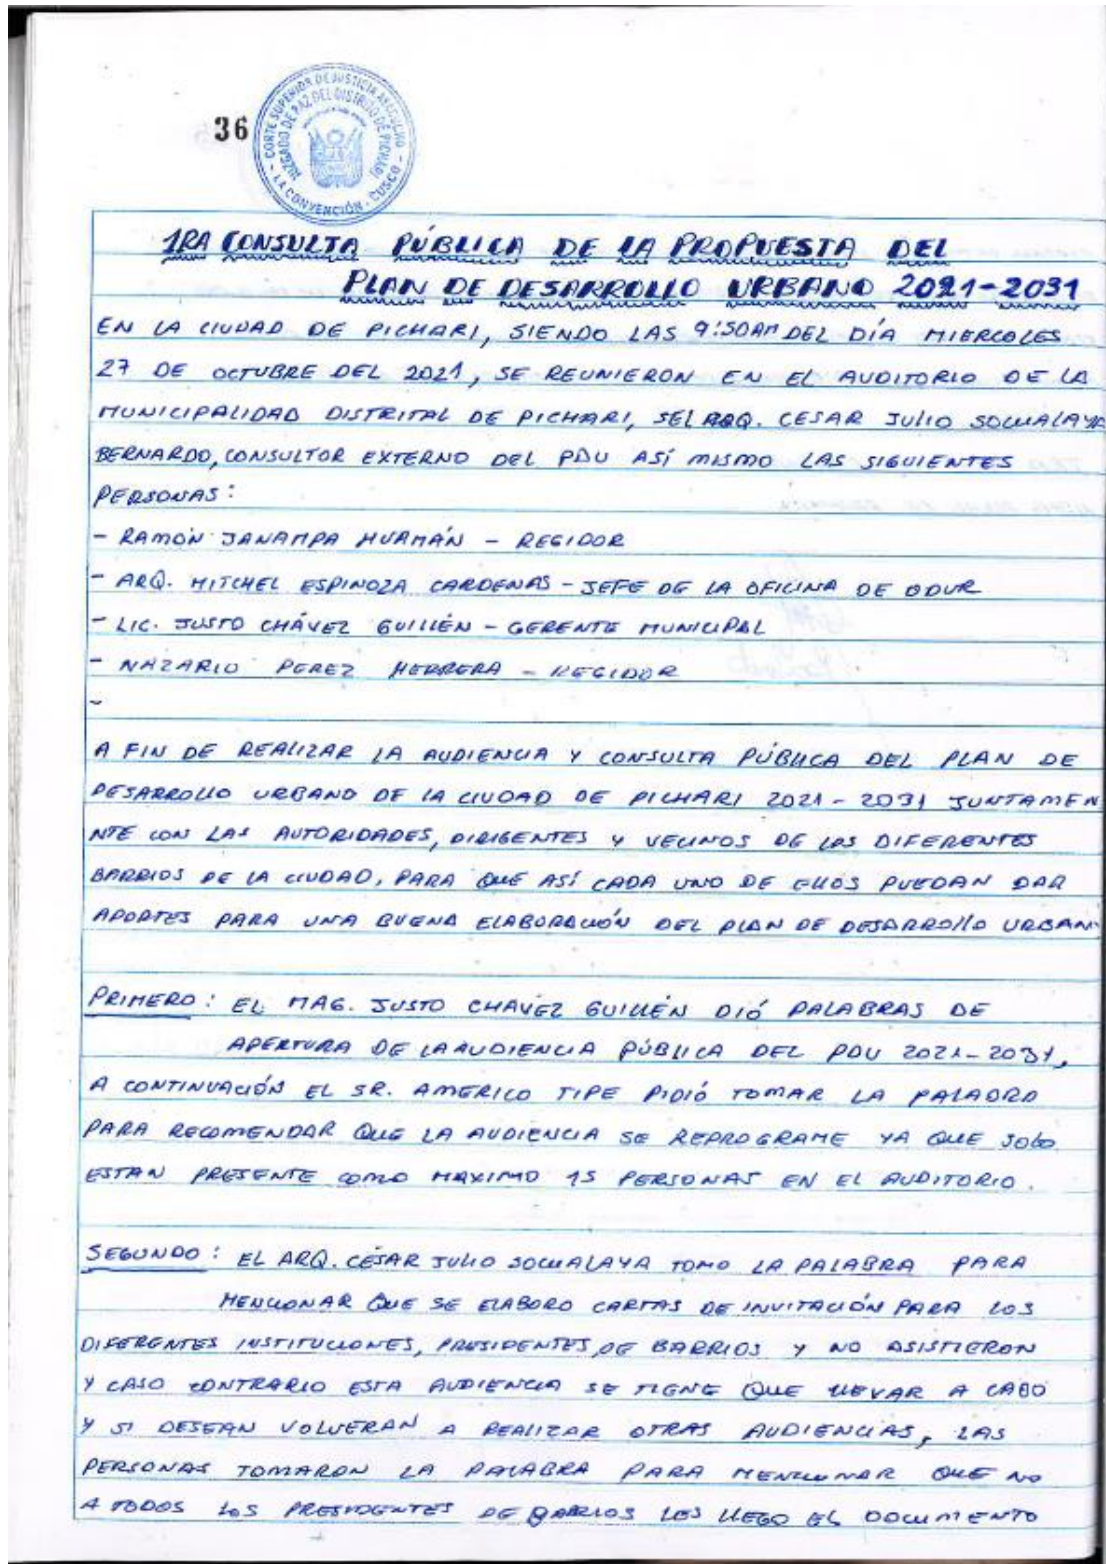 36
CORTE SUPERIOR DE JUSTICIA AYACUCHO
JUZGADO DE PAZ DEL DISTRITO DE PICHARI
LA CONVENCIÓN - CUSCO
1RA CONSULTA PÚBLICA DE LA PROPUESTA DEL
PLAN DE DESARROLLO URBANO 2021-2031
EN LA CIUDAD DE PICHARI, SIENDO LAS 9:50AM DEL DÍA MIERCOLES
27 DE OCTUBRE DEL 2021, SE REUNIERON EN EL AUDITORIO DE LA
MUNICIPALIDAD DISTRITAL DE PICHARI, SEL ARQ. CESAR JULIO SOCUALAYA
BERNARDO, CONSULTOR EXTERNO DEL PDU ASÍ MISMO LAS SIGUIENTES
PERSONAS:
- RAMÓN JANAMPA HUAMÁN - REGIDOR
- ARQ. MITCHEL ESPINOZA CARDENAS - JEFE DE LA OFICINA DE ODUR
- LIC. JUSTO CHÁVEZ GUILLÉN - GERENTE MUNICIPAL
- NAZARIO PEREZ HERRERA - REGIDOR
-
A FIN DE REALIZAR LA AUDIENCIA Y CONSULTA PÚBLICA DEL PLAN DE
DESARROLLO URBANO DE LA CIUDAD DE PICHARI 2021-2031 JUNTAMEN
NTE CON LAS AUTORIDADES, DIRIGENTES Y VECINOS DE LOS DIFERENTES
BARRIOS DE LA CIUDAD, PARA QUE ASÍ CADA UNO DE ELLOS PUEDAN DAR
APORTES PARA UNA BUENA ELABORACIÓN DEL PLAN DE DESARROLLO URBAN
PRIMERO: EL MAG. JUSTO CHAVEZ GUILLÉN DIÓ PALABRAS DE
APERTURA DE LA AUDIENCIA PÚBLICA DEL PDU 2021-2031,
A CONTINUACIÓN EL SR. AMERICO TIPE PIDIÓ TOMAR LA PALABRA
PARA RECOMENDAR QUE LA AUDIENCIA SE REPROGRAME YA QUE SOLO
ESTAN PRESENTE COMO MAXIMO 15 PERSONAS EN EL AUDITORIO.
SEGUNDO: EL ARQ. CÉSAR JULIO SOCUALAYA TOMO LA PALABRA PARA
MENCIONAR QUE SE ELABORO CARTAS DE INVITACIÓN PARA LOS
DIFERENTES INSTITUCIONES, PRESIDENTES DE BARRIOS Y NO ASISTIERON
Y CASO CONTRARIO ESTA AUDIENCIA SE TIENE QUE LLEVAR A CABO
Y SI DESEAN VOLVERAN A REALIZAR OTRAS AUDIENCIAS, LAS
PERSONAS TOMARON LA PALABRA PARA MENCIONAR QUE NO
A TODOS LOS PRESIDENTES DE BARRIOS LES LLEGO EL DOCUMENTO